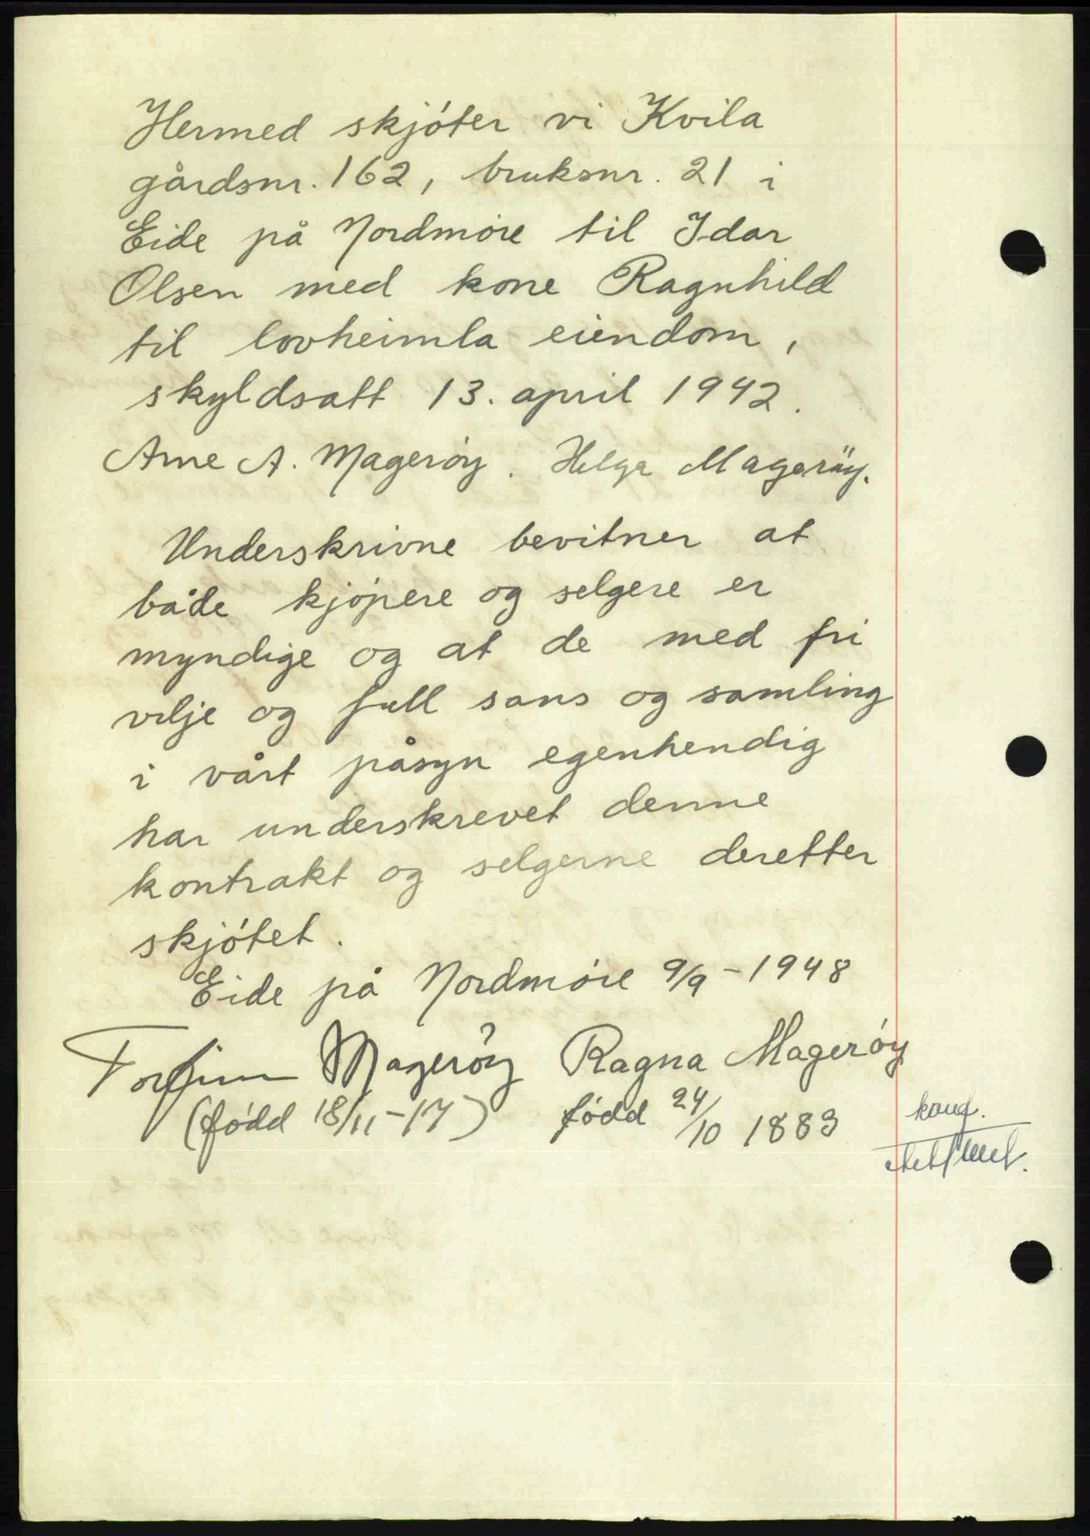 Hermed skjóter vi Kvila
gårdsnr. 162, bruksnr. 21 i
Eide på Nordmóre til Idar
Olsen med kone Ragnhild
til lovheimla eiendom,
skyldsatt 13. april 1942.
Arne A. Mageróy. Helga Magerøy.
Underskrivne bevitner at
både kjópere og selgere er
myndige og at de med fri
vilje og full sans og samling
i vårt påsyn egenhendig
har underskrevet denne
kontrakt og selgerne deretter
skjótet.
Eide på Nordmóre 9/9-1948
Torfinn Mageróy Ragna Mageróy
(fódd 18/11-17) fódd 24/10 1883